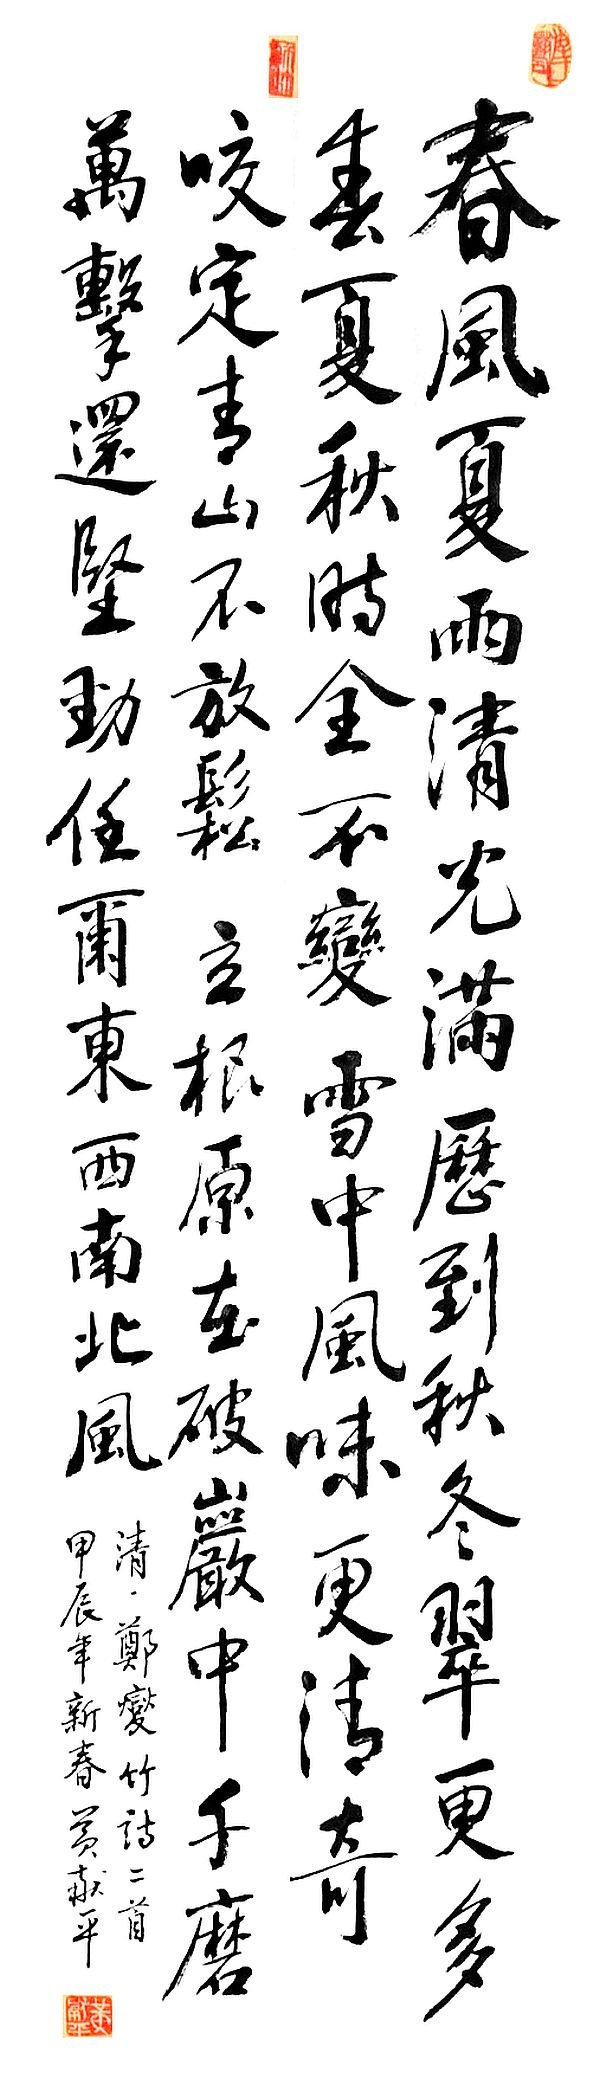 春風夏雨清光滿歷到秋冬翠更多
春夏秋時全不變雪中風味更清奇
咬定青山不放鬆立根原在破巖中千磨
萬擊還堅勁任爾東西南北風
清·鄭燮竹詩二首
甲辰年新春黃献平